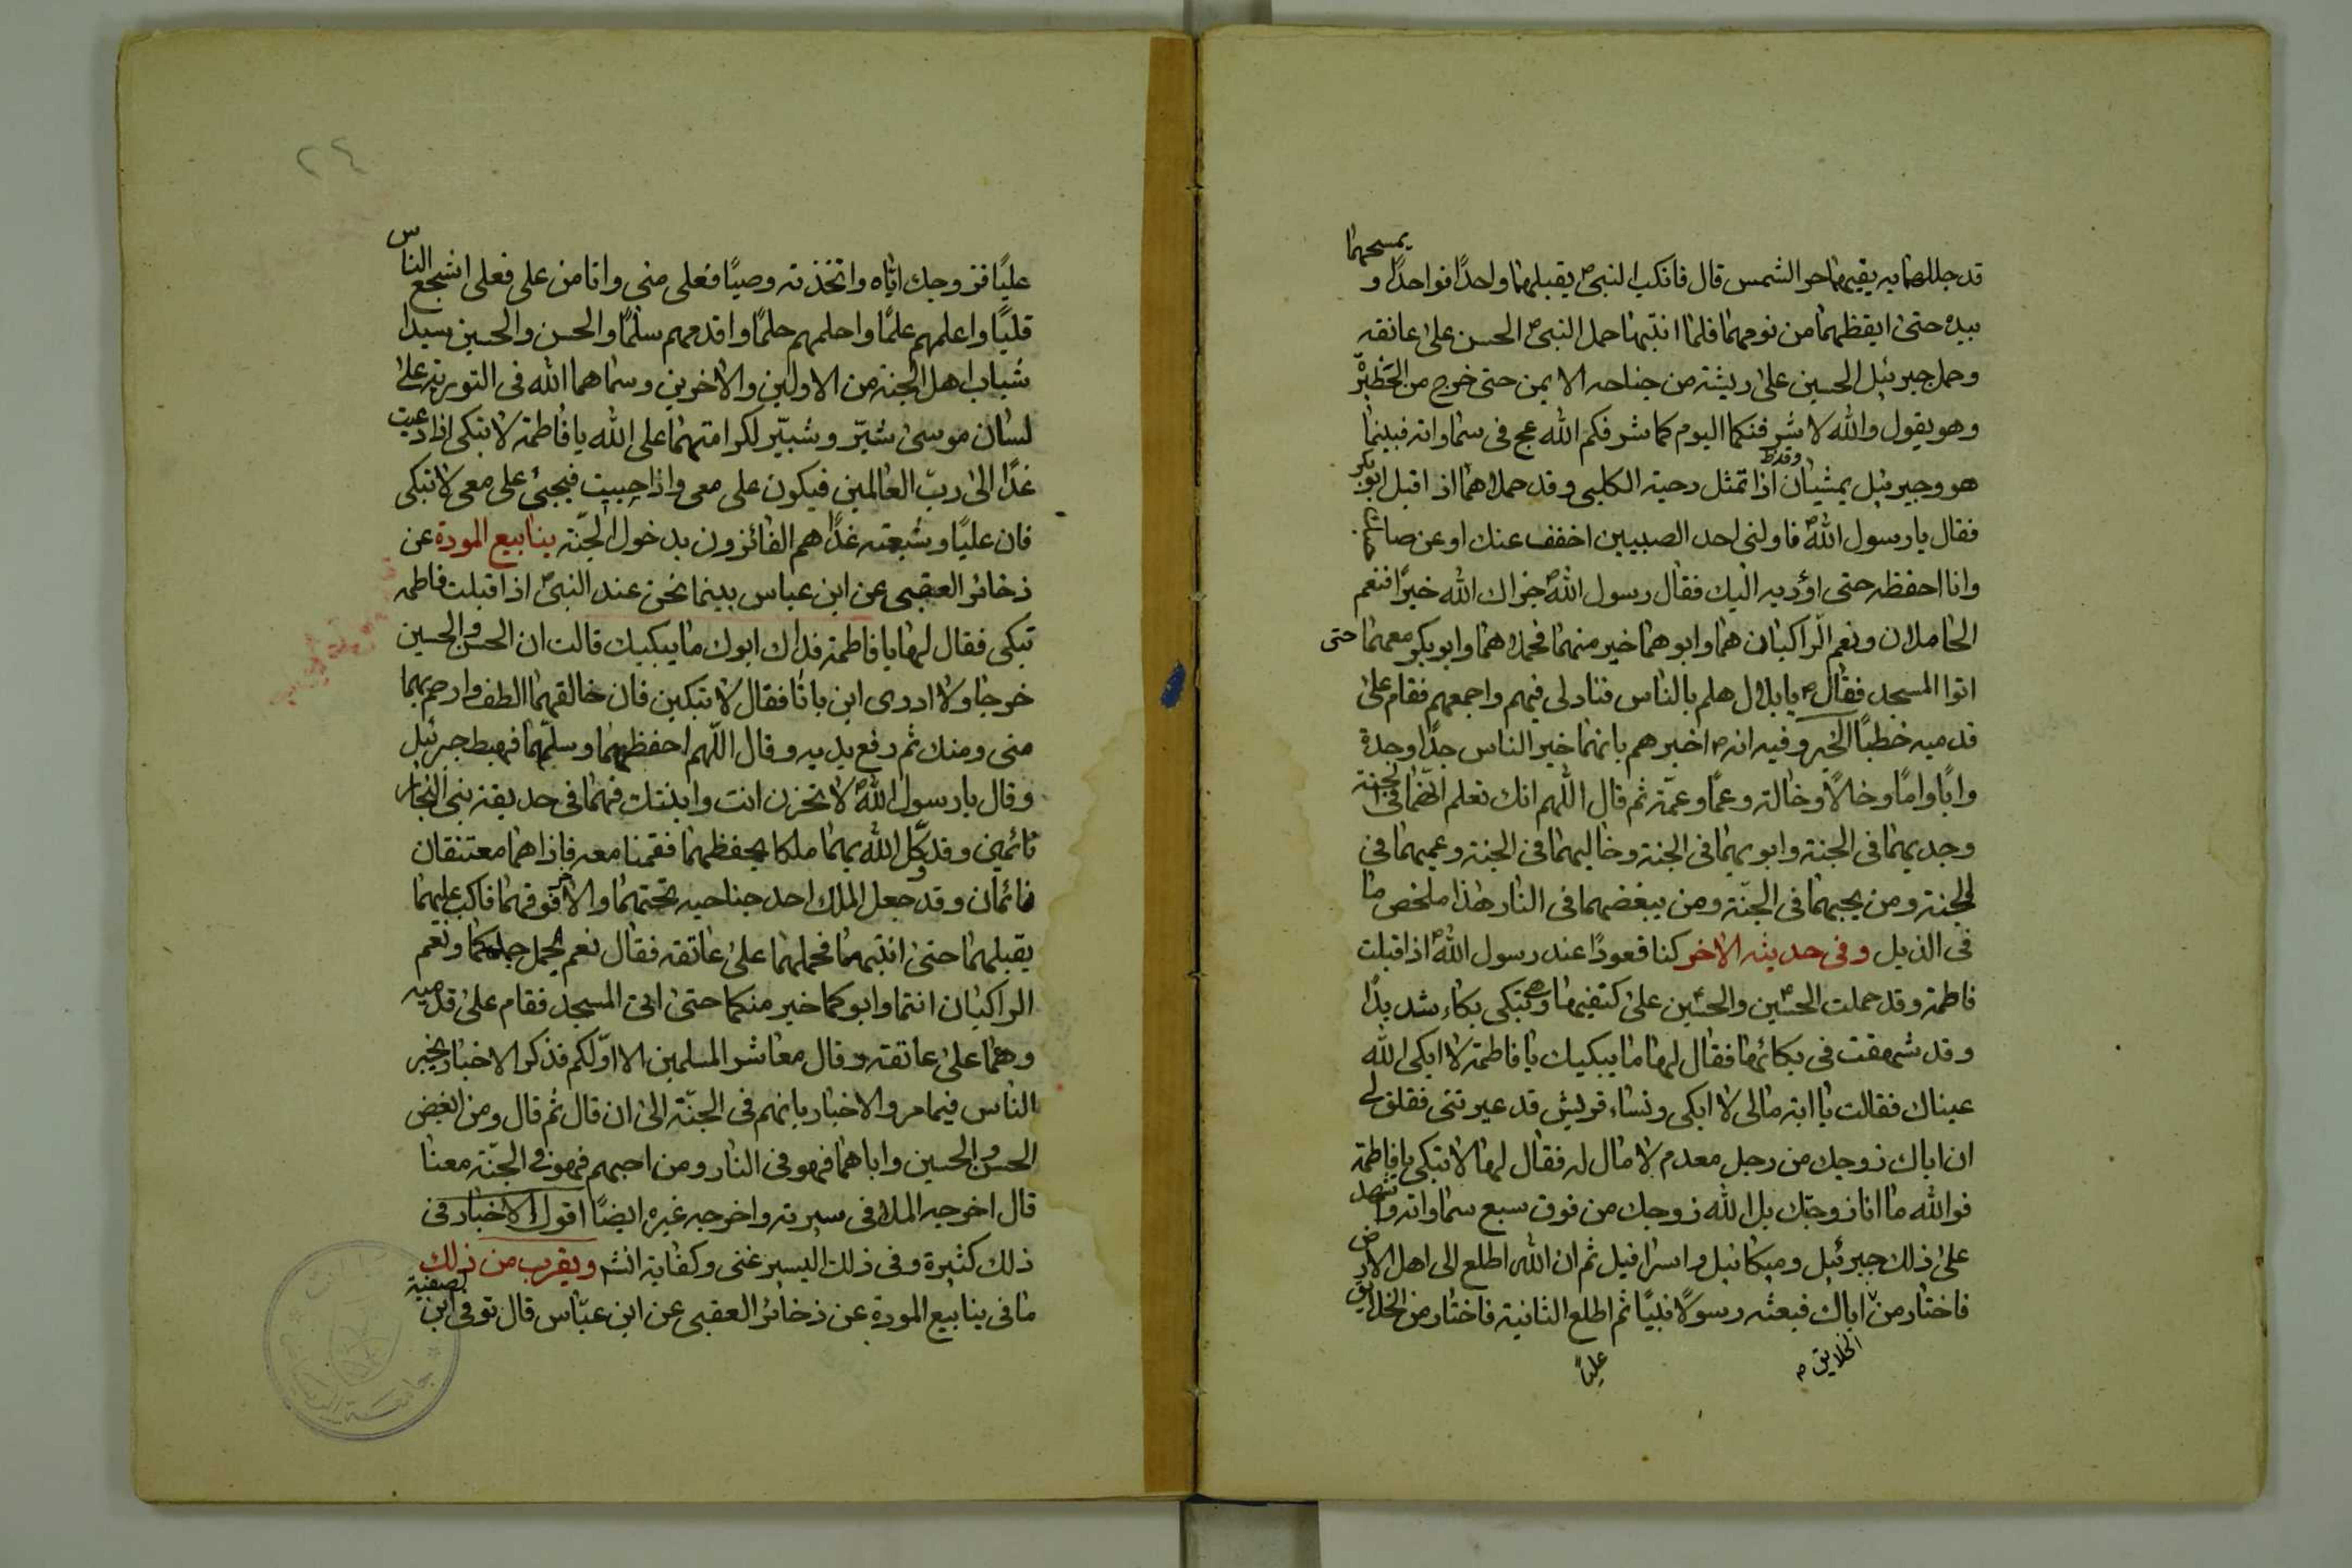 قد جللهما به يقيهما حر الشمس قال فانكب النبي ص يقبلهما واحدًا فواحدًا و يمسحهما
بيده حتى ايقظهما من نومهما فلما انتبها حمل النبي ص الحسن على عاتقه
وحمل جبرئيل الحسين على ريشة من جناحه الايمن حتى خرج من الحظيرة
وهو يقول والله لاشرفنكما اليوم كما شرفكم الله عج في سماواته فبينما
هو وجبرئيل يمشيان اذا تمثل دحية الكلبي وقد حملاهما اذ اقبل ابو بكر
فقال يا رسول الله ص ناولني احد الصبيين اخفف عنك او عن صاحبك
وانا احفظه حتى اؤديه اليك فقال رسول الله ص جزاك الله خيرًا فنعم
الحاملان ونعم الراكبان هما وابوهما خير منهما فحملاهما وابو بكر معهما حتى
اتوا المسجد فقال ص يا بلال هلم بالناس فنادى فيهم واجمعهم فقام على
قدميه خطبًا الخبر وفيه انه ص اخبرهم بانهما خير الناس جدًا وجدة
وابًا وامًا وخالًا وخالة وعمًا وعمّة ثم قال اللهم انك تعلم انهما في الجنة
وجديهما في الجنة وابويهما في الجنة وخاليهما في الجنة وعميهما في
الجنة ومن يحبهما في الجنّة ومن يبغضهما في النار هذا ملخص ما
في الذيل وفي حديثه الاخر كنا قعودًا عند رسول الله ص اذ اقبلت
فاطمة وقد حملت الحسن والحسين على كتفيها وهي تبكي بكاء شديدًا
وقد شهقت في بكائها فقال لها ما يبكيك يا فاطمة لا ابكى الله
عيناك فقالت يا ابه مالي لا ابكي ونساء قريش قد عيرتني فقلن لي
ان اباك زوجك من رجل معدم لا مال له فقال لها لا تبكي يا فاطمة
فوالله ما انا زوجتك بل الله زوجك من فوق سبع سماواته واشهد
على ذلك جبرئيل وميكائيل واسرافيل ثم ان الله اطلع الى اهل الارض
فاختار من اباك فبعثه رسولًا نبيًا ثم اطلع الثانية فاختار من الخلايق
الخلايق ص
عليًا
٢٤
عليًا فزوجك ايّاه واتخذته وصيًا فعلى مني وانا من على فعلى اشجع الناس
قلبًا واعلمهم علمًا واحلمهم حلمًا واقدمهم سلمًا والحسن والحسين سيدا
شباب اهل الجنة من الاولين والاخرين وسماهما الله في التورية على
لسان موسى شبّر وشبّير لكرامتهما على الله يا فاطمة لا تبكي اذا دعيت
غدًا الى ربّ العالمين فيكون على معي واذا حييت فيجيئ على معي لا تبكي
فان عليًا وشيعته غدًا هم الفائزون بدخول الجنّة ينابيع المودة عن
ذخائر العقبى عن ابن عباس بينما نحن عند النبي ص اذ اقبلت فاطمه
تبكي فقال لها يا فاطمة فداك ابوك ما يبكيك قالت ان الحسن والحسين
خرجا ولا ادري اين باتا فقال لا تبكين فان خالقهما الطف وارحم بهما
مني ومنك ثم رفع يديه وقال اللهم احفظهما وسلّمهما فهبط جبرئيل
وقال يا رسول الله ص لا تحزن انت وابنتك فهما في حديقة بني النجار
نائمين وقد وكّل الله بهما ملكا يحفظهما فقمنا معه فاذا هما معتنقان
نائمان وقد جعل الملك احد جناحيه تحتهما والاخر فوقهما فاكب عليهما
يقبلهما حتى انتبهما فحملهما على عاتقه فقال نعم الجمل جملكما ونعم
الراكبان انتما وابوكما خير منكما حتى اتى المسجد فقام على قدميه
وهما على عاتقه وقال معاشر المسلمين الا ادلكم فذكر الاخبار بخير
الناس فيما مر والاخبار بانهم في الجنّة الى ان قال ثم قال ومن ابغض
الحسن والحسين واباهما فهو في النار ومن احبهم فهو في الجنّة معنا
قال اخرجه الملا في سيرته واخرجه غيره ايضًا اقول الاخبار في
ذلك كثيرة وفي ذلك اليسير غنى وكفاية انشم ويقرب من ذلك
ما في ينابيع المودة عن ذخائر العقبى عن ابن عبّاس قال توفي ابن لصفية